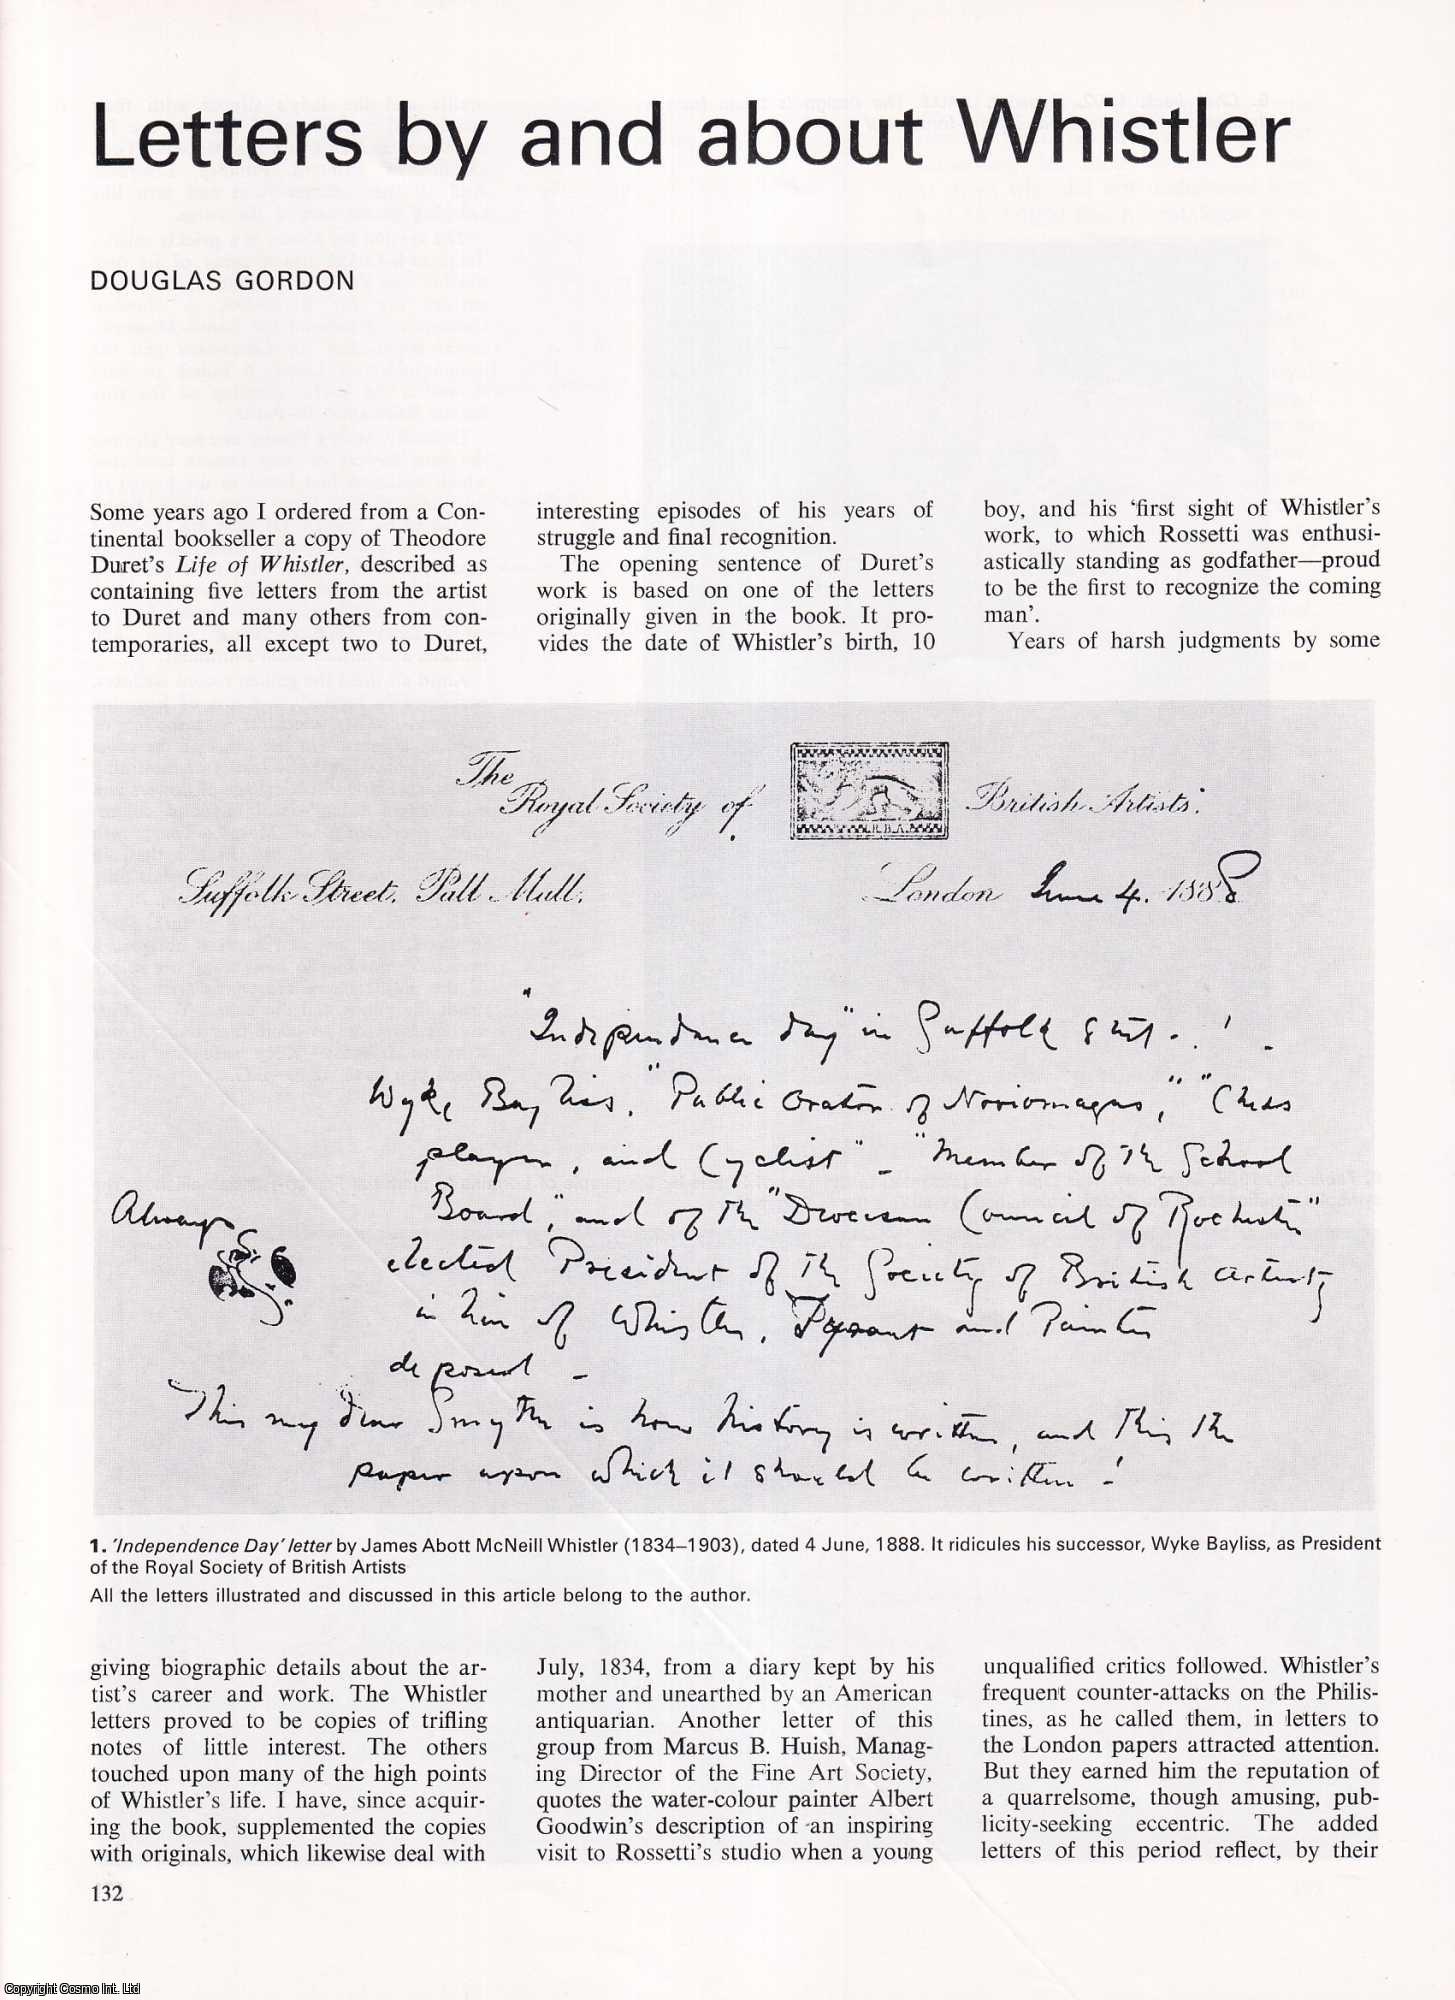 Letters by and about Whistler
DOUGLAS GORDON
Some years ago I ordered from a Con-
tinental bookseller a copy of Theodore
Duret's Life of Whistler, described as
containing five letters from the artist
to Duret and many others from con-
temporaries, all except two to Duret,
interesting episodes of his years of
struggle and final recognition.
The opening sentence of Duret's
work is based on one of the letters
originally given in the book. It pro-
vides the date of Whistler's birth, 10
boy, and his ‘first sight of Whistler's
work, to which Rossetti was enthusi-
astically standing as godfather—proud
to be the first to recognize the coming
man’.
Years of harsh judgments by some
The
Royal Society of British Artists.
R.B.A.
Suffolk Street, Pall Mall, London June 4. 1888
"Independence day" in Suffolk Street - . ! -
Wyke Bayliss, "Public Orator of Noviomagus," "Chess
player, and Cyclist" - "Member of the School
Board," and of the "Diocesan Council of Rochester"
elected President of the Society of British Artists
in lieu of Whistler, Tyrant and Painter
deposed -
Always
This my dear Smythe is how history is written, and this the
paper upon which it should be written !
1. ‘Independence Day’ letter by James Abott McNeill Whistler (1834–1903), dated 4 June, 1888. It ridicules his successor, Wyke Bayliss, as President
of the Royal Society of British Artists
All the letters illustrated and discussed in this article belong to the author.
giving biographic details about the ar-
tist's career and work. The Whistler
letters proved to be copies of trifling
notes of little interest. The others
touched upon many of the high points
of Whistler's life. I have, since acquir-
ing the book, supplemented the copies
with originals, which likewise deal with
July, 1834, from a diary kept by his
mother and unearthed by an American
antiquarian. Another letter of this
group from Marcus B. Huish, Manag-
ing Director of the Fine Art Society,
quotes the water-colour painter Albert
Goodwin's description of an inspiring
visit to Rossetti's studio when a young
unqualified critics followed. Whistler's
frequent counter-attacks on the Philis-
tines, as he called them, in letters to
the London papers attracted attention.
But they earned him the reputation of
a quarrelsome, though amusing, pub-
licity-seeking eccentric. The added
letters of this period reflect, by their
132
Copyright Cosmo Int. Ltd